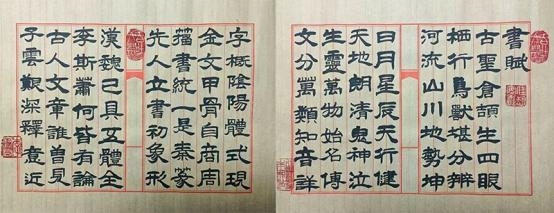 書賦
古聖倉頡生四眼
栖行鳥獸堪分辨
河流山川地勢坤
日月星辰天行健
天地朗清鬼神泣
生靈萬物始名傳
文分萬類知音詳
字概陰陽體式現
金文甲骨自商周
籀書統一是秦篆
先人立書初象形
漢魏已具五體全
李斯蕭何皆有論
古人文章誰曾見
子雲艱深釋意近